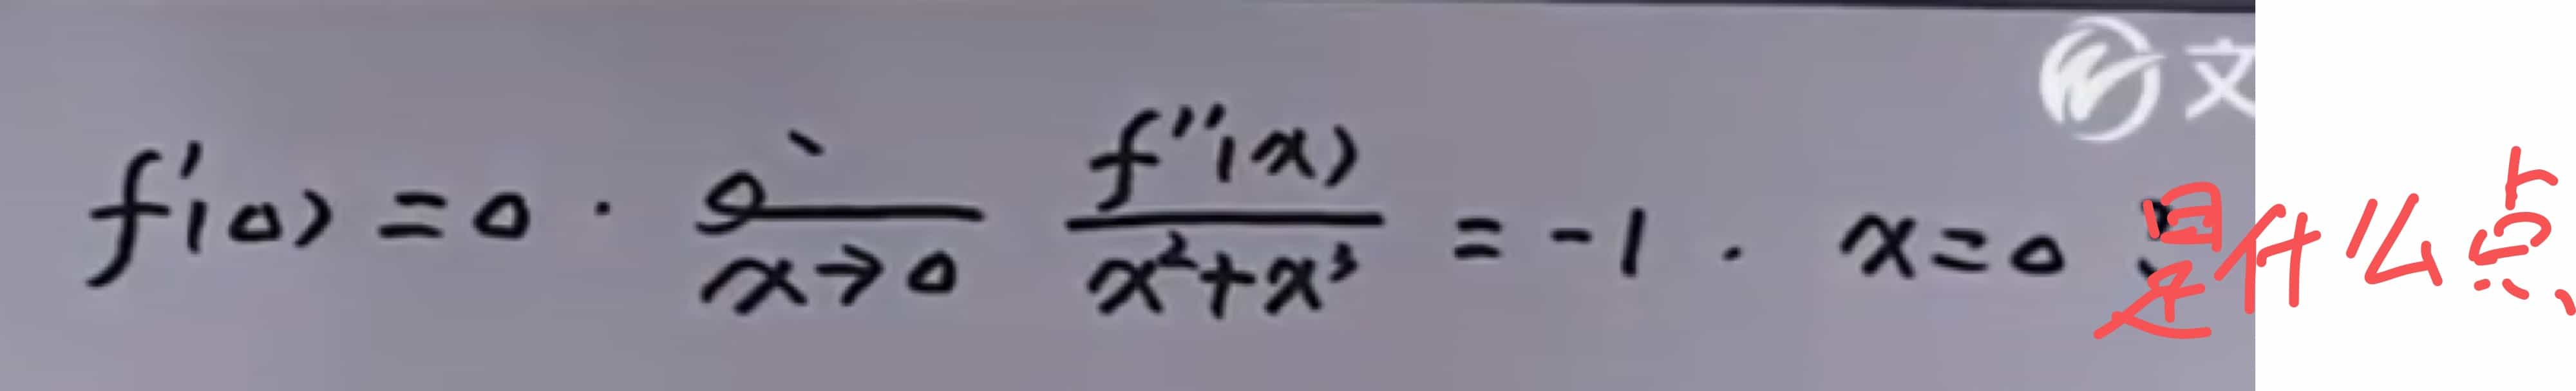 文
f'(0)=0. lim x→0 f''(x)/(x²+x³) = -1. x=0 是什么点